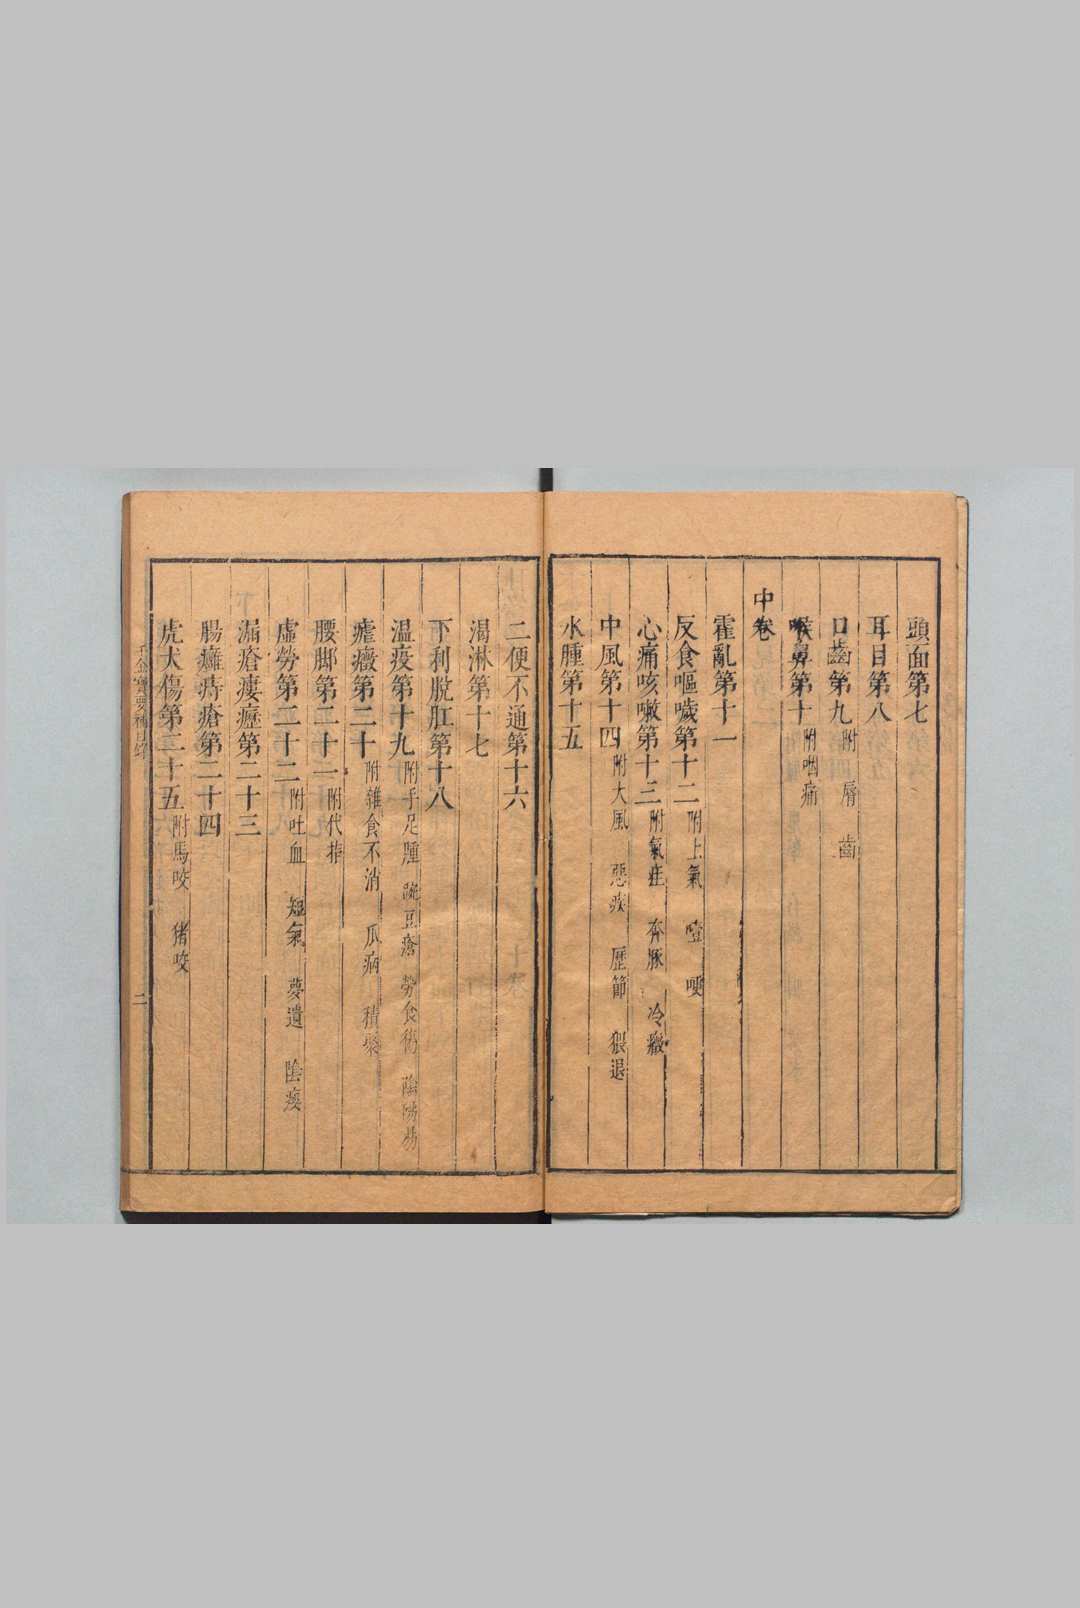 頭面第七
耳目第八
口齒第九 附 脣 齒
喉鼻第十 附咽痛
中卷
霍亂第十一
反食嘔噦第十二 附上氣 噎 哽
心痛咳嗽第十三 附氣疰 奔豚 冷癥
中風第十四 附大風 惡疾 歷節 猥退
水腫第十五
二便不通第十六
渴淋第十七
下利脫肛第十八
溫疫第十九 附手足腫 豌豆瘡 勞食複 陰陽易
瘧癥第二十 附雜食不消 瓜病 積聚
腰脚第二十一 附代指
虛勞第二十二 附吐血 短氣 夢遺 陰痿
漏瘡瘻癧第二十三
腸癰痔瘡第二十四
虎犬傷第二十五 附馬咬 猪咬
千金寶要補目錄 二